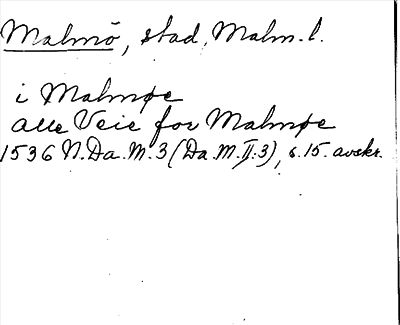 Malmö, stad, Malm. l.
i Malmøe
alle Veie for Malmøe
1536 N.Da.M.3 (Da.M.II:3), s.15. avskr.